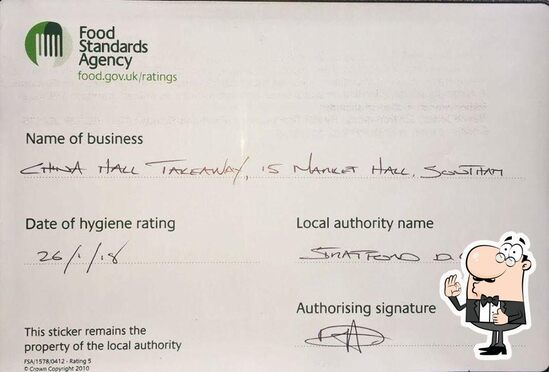 Food
Standards
Agency
food.gov.uk/ratings
Name of business
CHINA HALL TAKEAWAY, 15 MARKET HALL, SOUTHAM
Date of hygiene rating
26/1/18
Local authority name
STRATFORD D.
Authorising signature
This sticker remains the
property of the local authority
FSA/1578/0412 - Rating 5
© Crown Copyright 2010